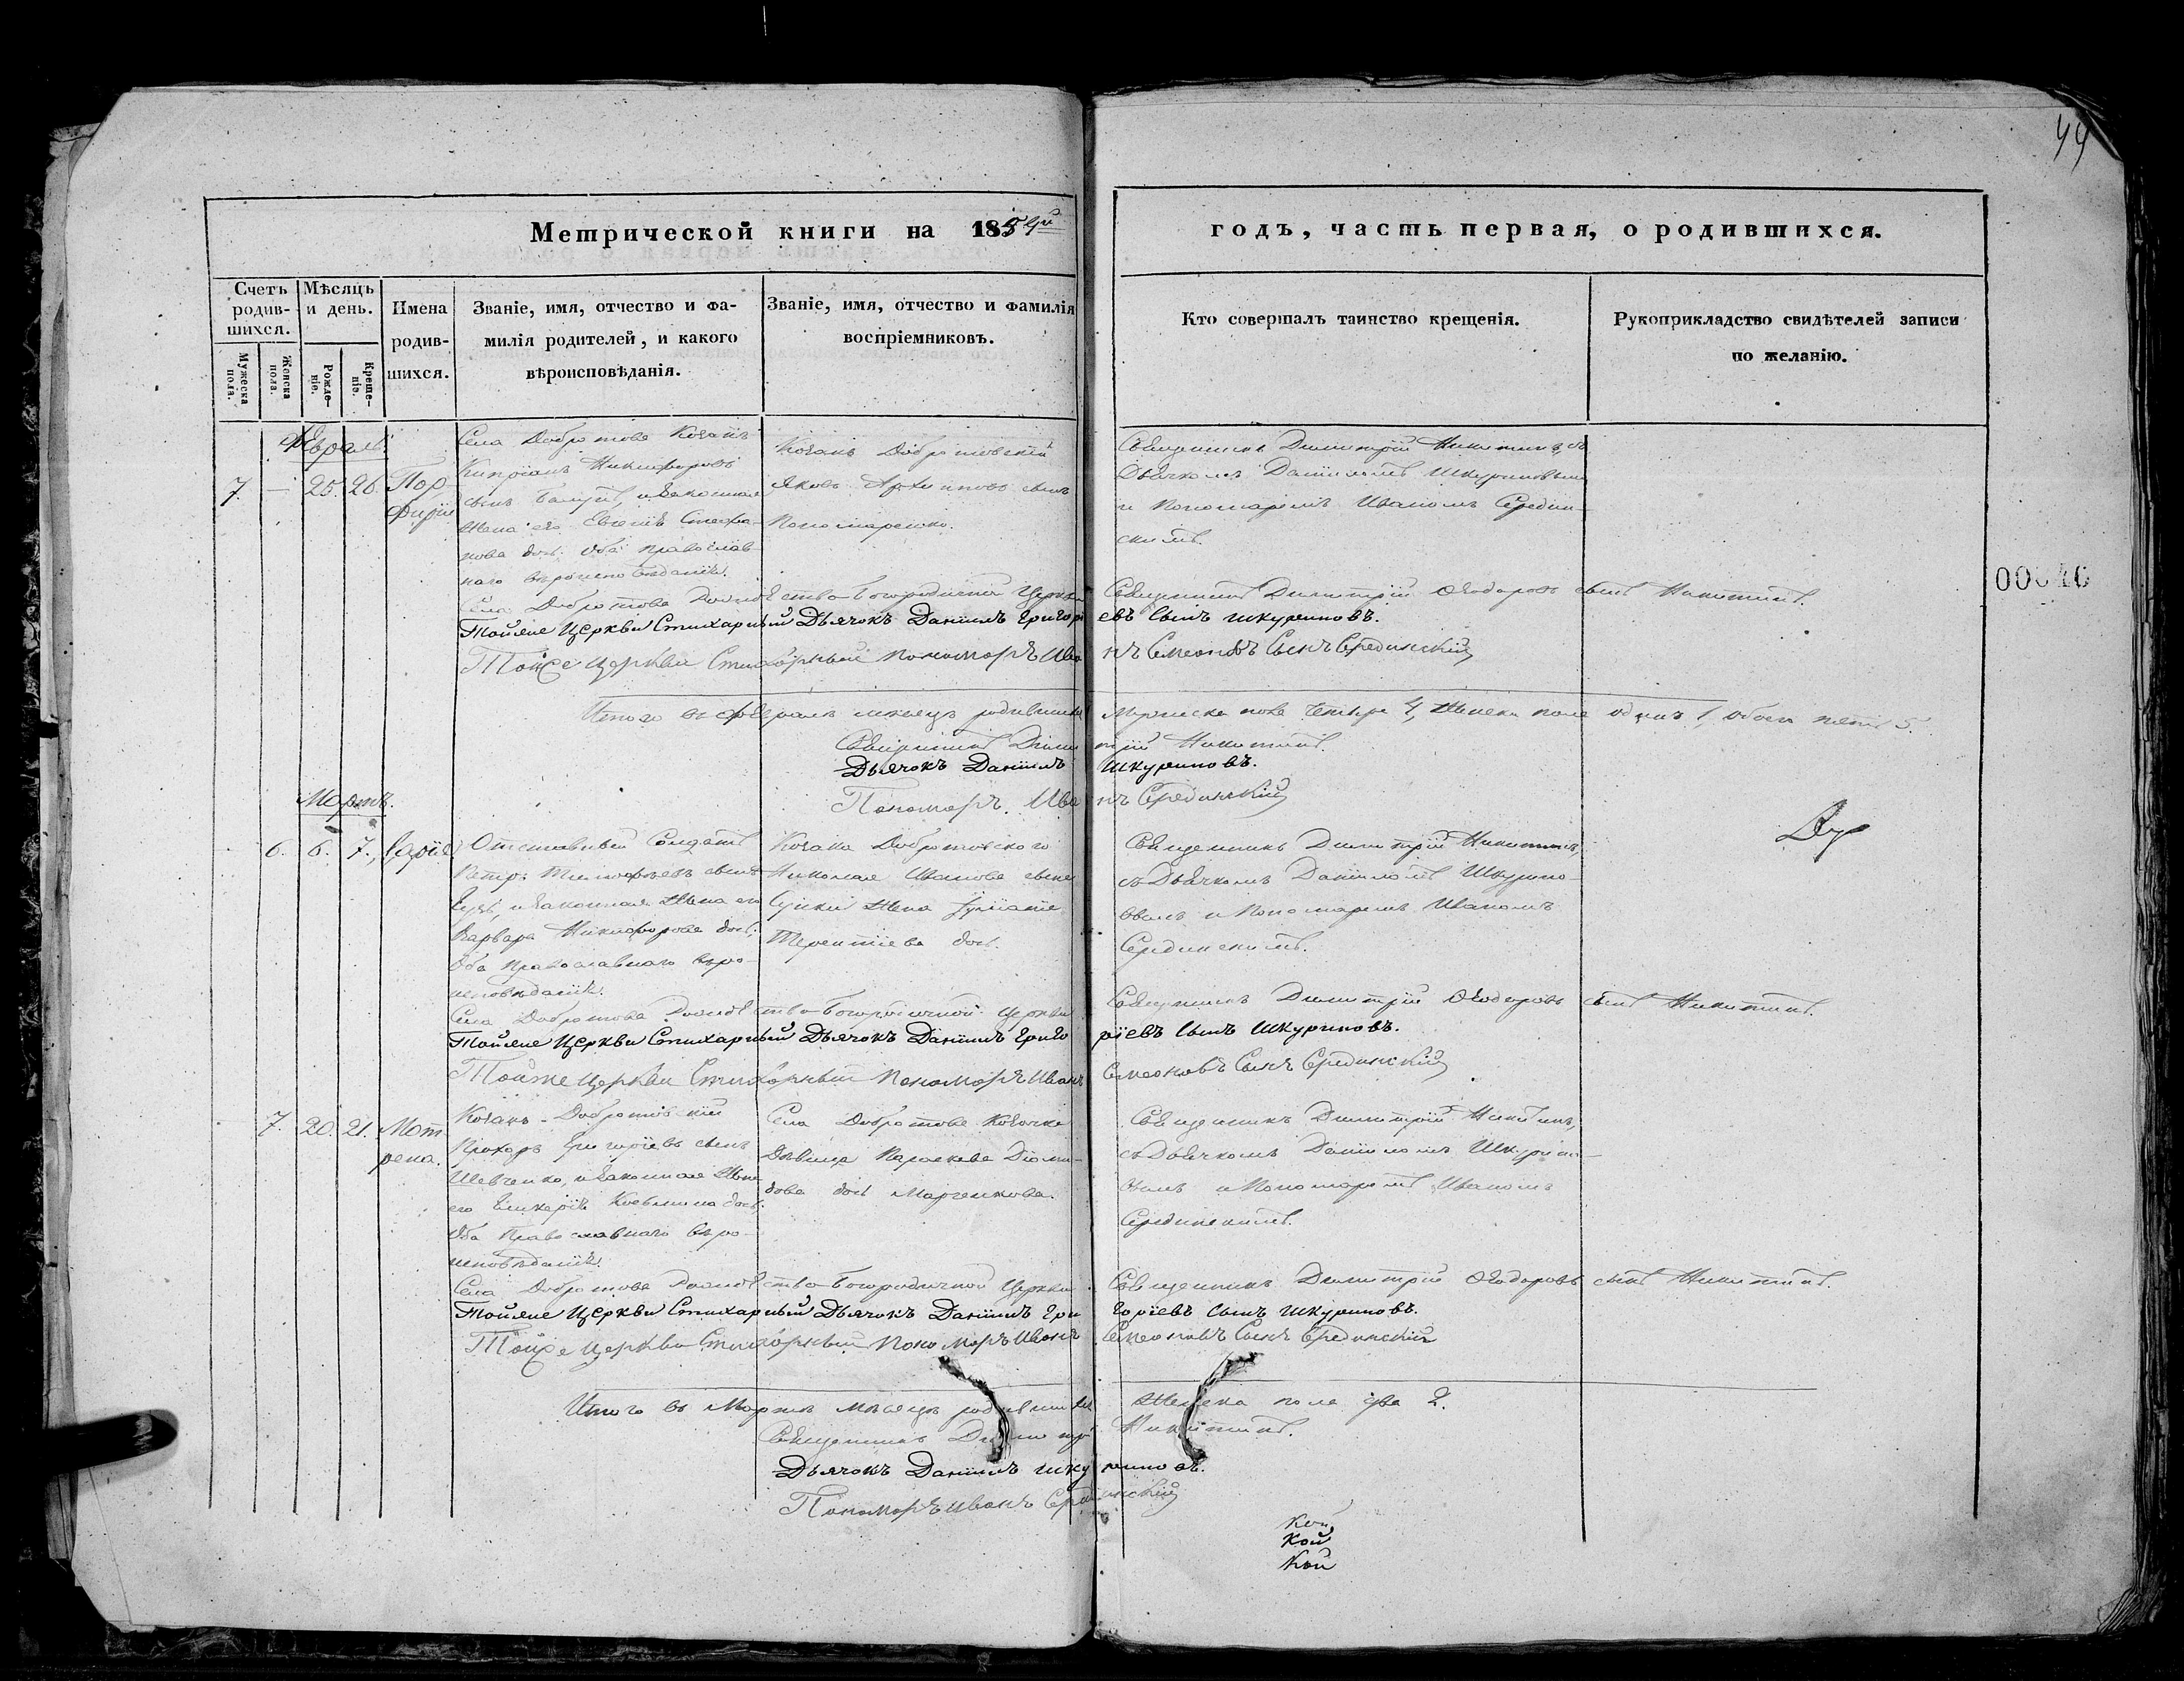 44
Метрической книги на 1854й
годъ, часть первая, о родившихся.
Счетъ родив-шихся.
Мѣсяцъ и день.
Имена родив-шихся.
Званіе, имя, отчество и фа-
милія родителей, и какого
вѣроисповѣданія.
Званіе, имя, отчество и фамилія
воспріемниковъ.
Кто совершалъ таинство крещенія.
Рукоприкладство свидѣтелей записи
по желанію.
Мужеска пола.
Женска пола.
Рожде-ніе.
Креще-ніе.
Февраль
7. — 25. 26. Пор-
фирій
Села Добротова Козакъ
Кипріанъ Никифоровъ
сынъ и законная
жена его Евгенія Стефа-
нова доч. Оба православ-
наго вѣроисповѣданія.
Козакъ Добротовскій
Яковъ Архиповъ сынъ
Пономаренко.
Священникъ Димитрій Никитинъ, съ
Дьячкомъ Даніиломъ Шкуриновымъ
и Пономаремъ Иваномъ Средин-
скимъ.
Села Добротова Рождество-Богородичной Церкви Священникъ Димитрій Ѳеодоровъ сынъ Никитинъ.
Тойже Церкви Стихарный Дьячокъ Даніилъ Григорь евъ Сынъ Шкуриновъ.
Тойже Церкви Стихарный Пономаръ Ива нъ Семеновъ Сынъ Срединскій
Итого въ февралѣ мѣсяцѣ родившихся Мужеска пола четыре 4, Женска пола одна 1, обоего пять 5.
Священникъ Дими трій Никитинъ.
Дьячокъ Даніилъ Шкуриновъ.
Пономаръ Ива нъ Срединскій
Мартъ.
6. 6. 7. Дарія
Отставный Солдатъ
Петръ Тимофѣевъ сынъ
и законная жена его
Варвара Никифорова доч.
Оба Православнаго вѣро-
исповѣданія.
Козака Добротовского
Николая Иванова сына
жена Іуліанія
Терентіева доч.
Священникъ Димитрій Никитинъ,
съ Дьячкомъ Даніиломъ Шкурино-
вымъ и Пономаремъ Иваномъ
Срединскимъ.
Села Добротова Рождество-Богородичной Церкви Священникъ Димитрій Ѳеодоровъ сынъ Никитинъ.
Тойже Церкви Стихарный Дьячокъ Даніилъ Григо ріевъ Сынъ Шкуриновъ.
Тойже Церкви Стихарный Пономаръ Иванъ Семеновъ Сынъ Срединскій
7. 20. 21. Мот-
рена.
Козакъ Добротовскій
Прохоръ Григоріевъ сынъ
Шевченко, и законная жена
его Гликерія Козьмина доч.
Оба Православнаго вѣро-
исповѣданія.
Села Добротова Козачка
Дѣвица Параскева Діоми-
дова доч. Марченкова.
Священникъ Димитрій Никитинъ,
съ Дьячкомъ Даніиломъ Шкурино-
вымъ и Пономаремъ Иваномъ
Срединскимъ.
Села Добротова Рождество-Богородичной Церкви Священникъ Димитрій Ѳеодоровъ сынъ Никитинъ.
Тойже Церкви Стихарный Дьячокъ Даніилъ Гри горіевъ Сынъ Шкуриновъ.
Тойже Церкви Стихарный Пономаръ Иванъ Семеновъ Сынъ Срединскій
Итого въ Мартѣ мѣсяцѣ родившихся Женска пола два 2.
Священникъ Димитрій Никитинъ.
Дьячокъ Даніилъ Шку риновъ.
Пономаръ Иванъ Срединскій
Кой
Кой
Кой